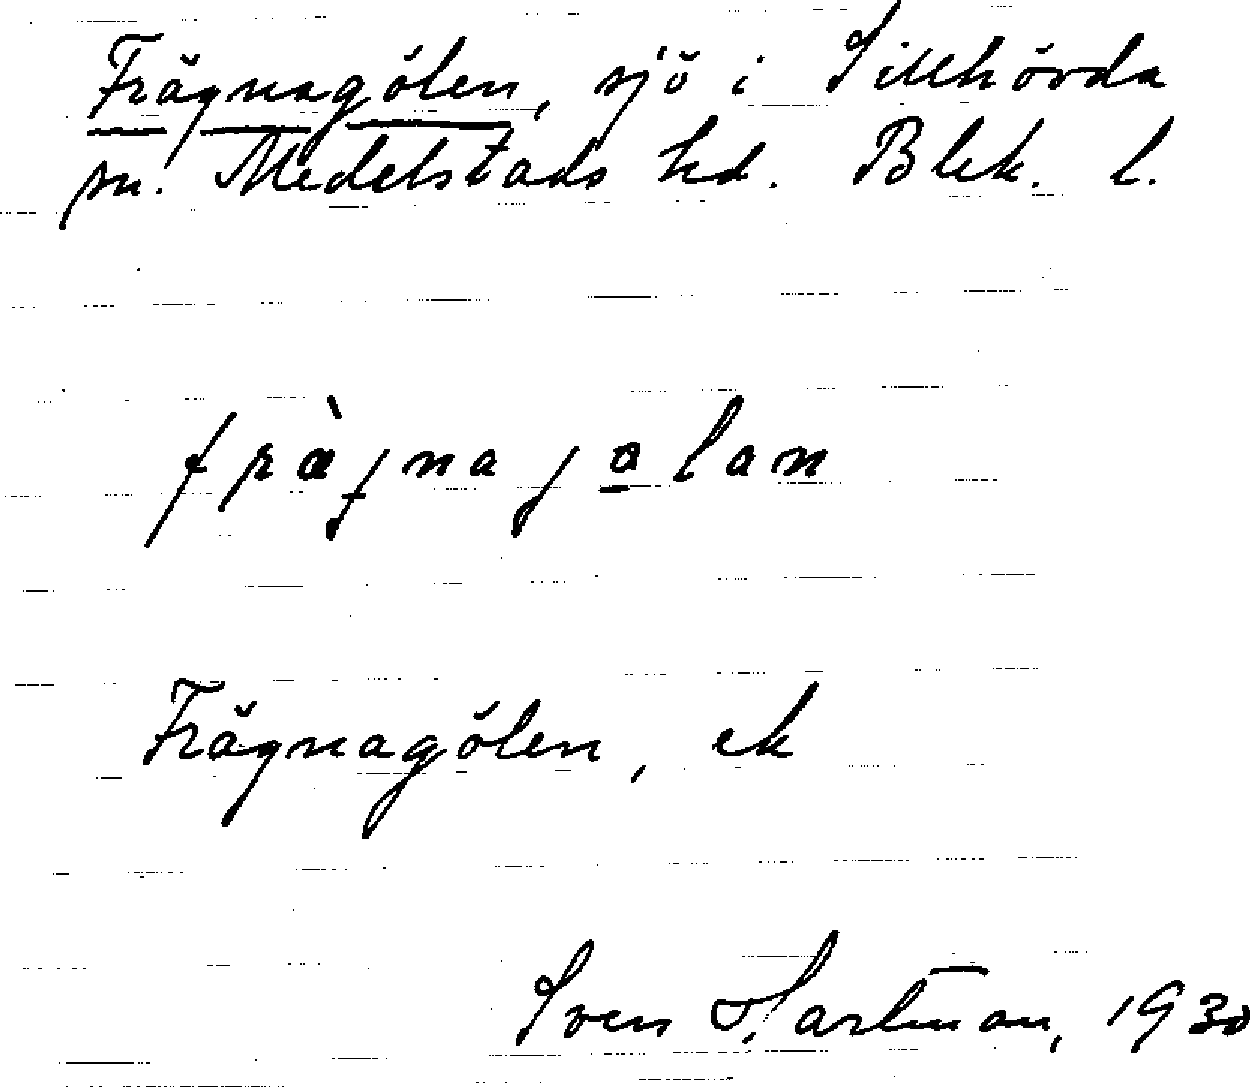 Frägnagölen, sjö i Sillhövda
sn. Medelstads hd. Blek. l.
fræ̀ɟnaɟo̲lan
Frägnagölen, ek
Sven T. Hartman, 1930